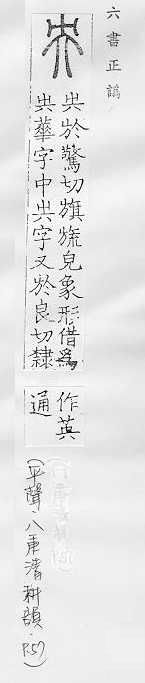 六書正譌
央於驚切旗旒皃象形借爲
央華字中央字又於良切隸
作英
通
(平聲‧八庚清耕韻‧P.57)